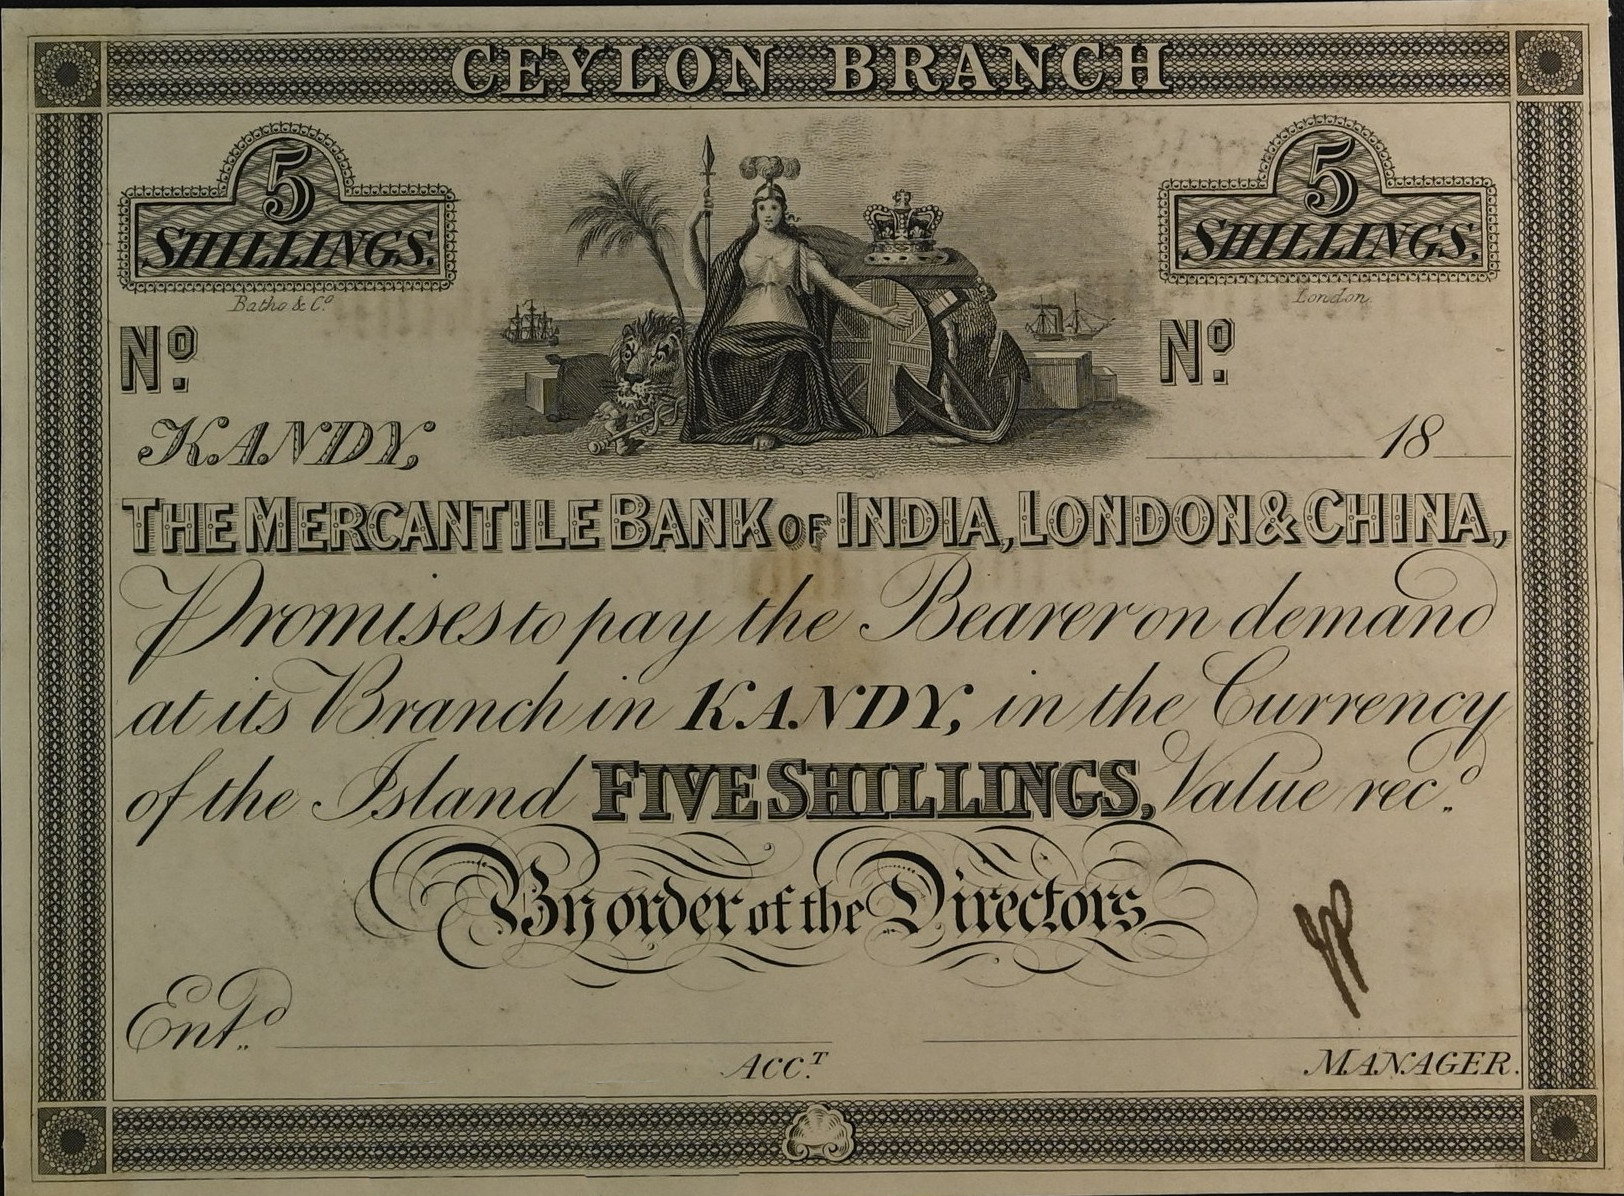 CEYLON BRANCH
5 SHILLINGS. 5 SHILLINGS.
Batho & Co. London.
No. No.
KANDY, 18
THE MERCANTILE BANK OF INDIA, LONDON & CHINA,
Promises to pay the Bearer on demand
at its Branch in KANDY, in the Currency
of the Island FIVE SHILLINGS, Value recd.
By order of the Directors
Entd.
ACCT. MANAGER.